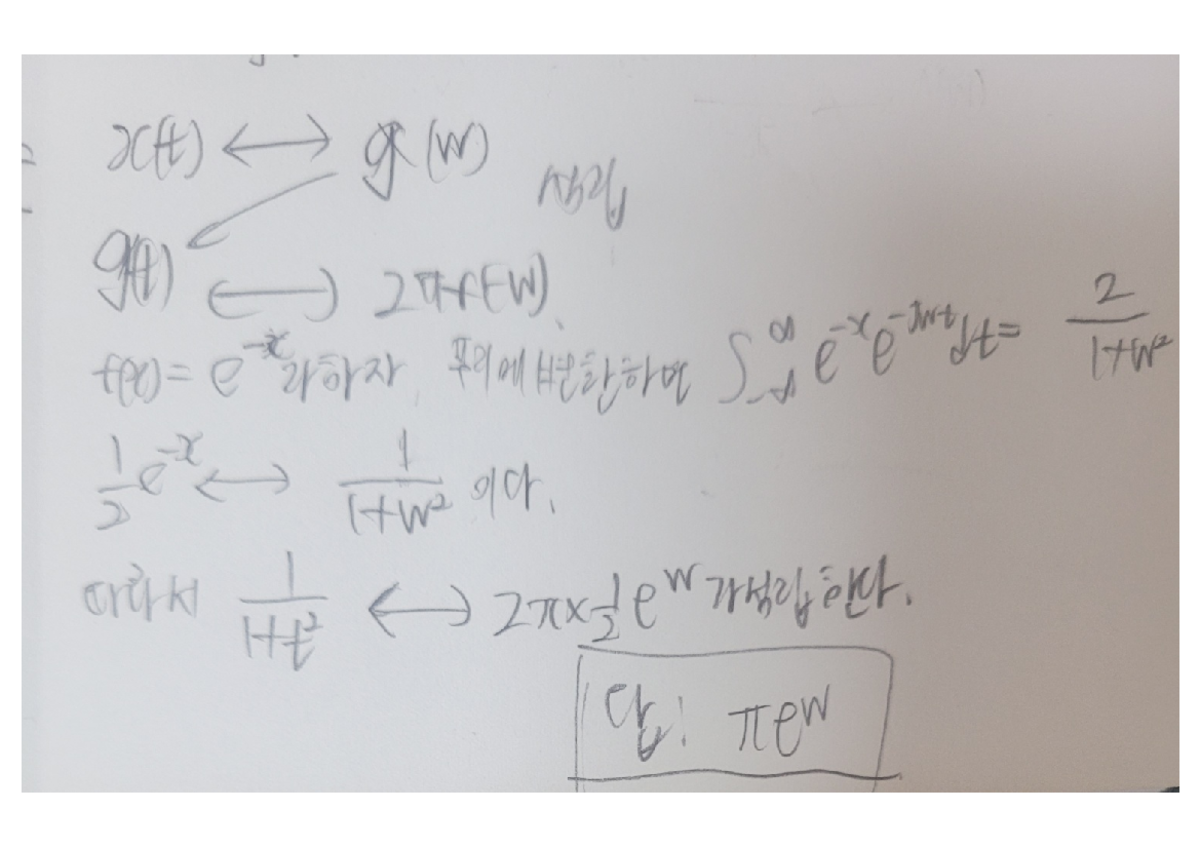 x(t) ↔ g(w) 성립
g(t) ↔ 2πf(-w).
f(x) = e^{-x}라하자. 푸리에 변환하면 ∫_{-∞}^{∞} e^{-x} e^{-jwt} dt = \frac{2}{1+w^2}
\frac{1}{2} e^{-x} ↔ \frac{1}{1+w^2} 이다.
따라서 \frac{1}{1+t^2} ↔ 2π×\frac{1}{2} e^{w} 가성립한다.
답: πe^{w}